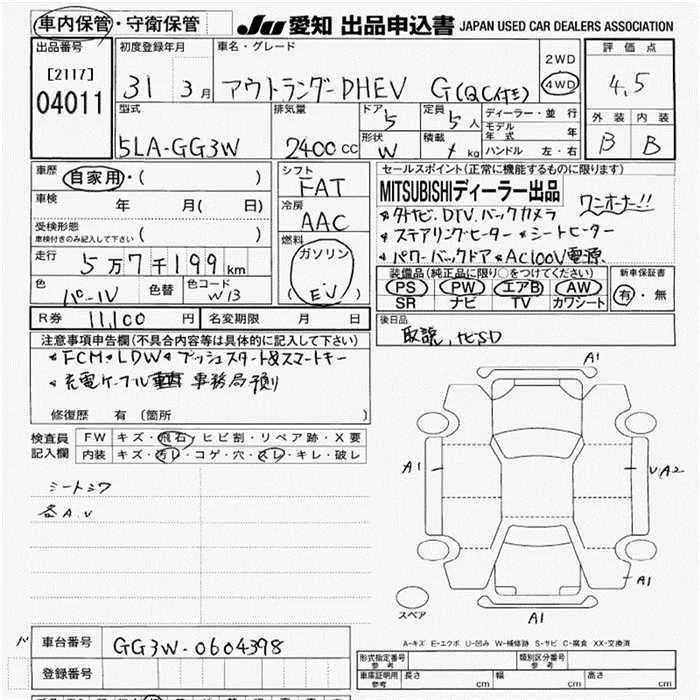 車内保管・守衛保管 JU 愛知 出品申込書 JAPAN USED CAR DEALERS ASSOCIATION
出品番号 初度登録年月 車名・グレード 2WD 評価点
[2117] 31 3月 アウトランダーPHEV G(QC付き) 4WD 4.5
04011 型式 排気量 ドア 5 定員 5人 ディーラー・並行 外装 内装
5LA-GG3W 2400cc 形状 W 積載 kg モデル年式 年 B B
ハンドル 左・右
車歴 自家用・( ) シフト FAT セールスポイント(正常に機能するものに限ります)
車検 年 月( 日) 冷房 AAC MITSUBISHIディーラー出品 ワンオーナー!!
受検形態 車検付きのみ記入して下さい ( ) 燃料 ガソリン (EV) *ナビ、DTV、バックカメラ
*ステアリングヒーター *シートヒーター
走行 5万7千199km *パワーバックドア *AC100V電源
色 パール 色替 色コード W13 装備品(純正品に限り○をつけてください) 新車保証書
PS PW エアB AW 有・無
SR ナビ TV カワシート
R券 11,100円 名変期限 月 日 後日品
取説、ナビSD
注意事項申告欄(不具合内容等は具体的に記入して下さい)
*FCM*LDW*プッシュスタート&スマートキー
*充電ケーブル 事務局預り
修復歴 有 〔箇所 〕
検査員記入欄 FW キズ・飛石・ヒビ割・リペア跡・X要
内装 キズ・汚レ・コゲ・穴・スレ・キレ・破レ
シートシワ
各A.U
A1
A1 UA2
A1
スペア A1
A-キズ E-エクボ U-凹み W-補修跡 S-サビ C-腐食 XX-交換済
車台番号 GG3W-0604398
登録番号
形式指定番号 参考 類別区分番号 参考
車庫証明用 参考 長さ cm 幅 cm 高さ cm